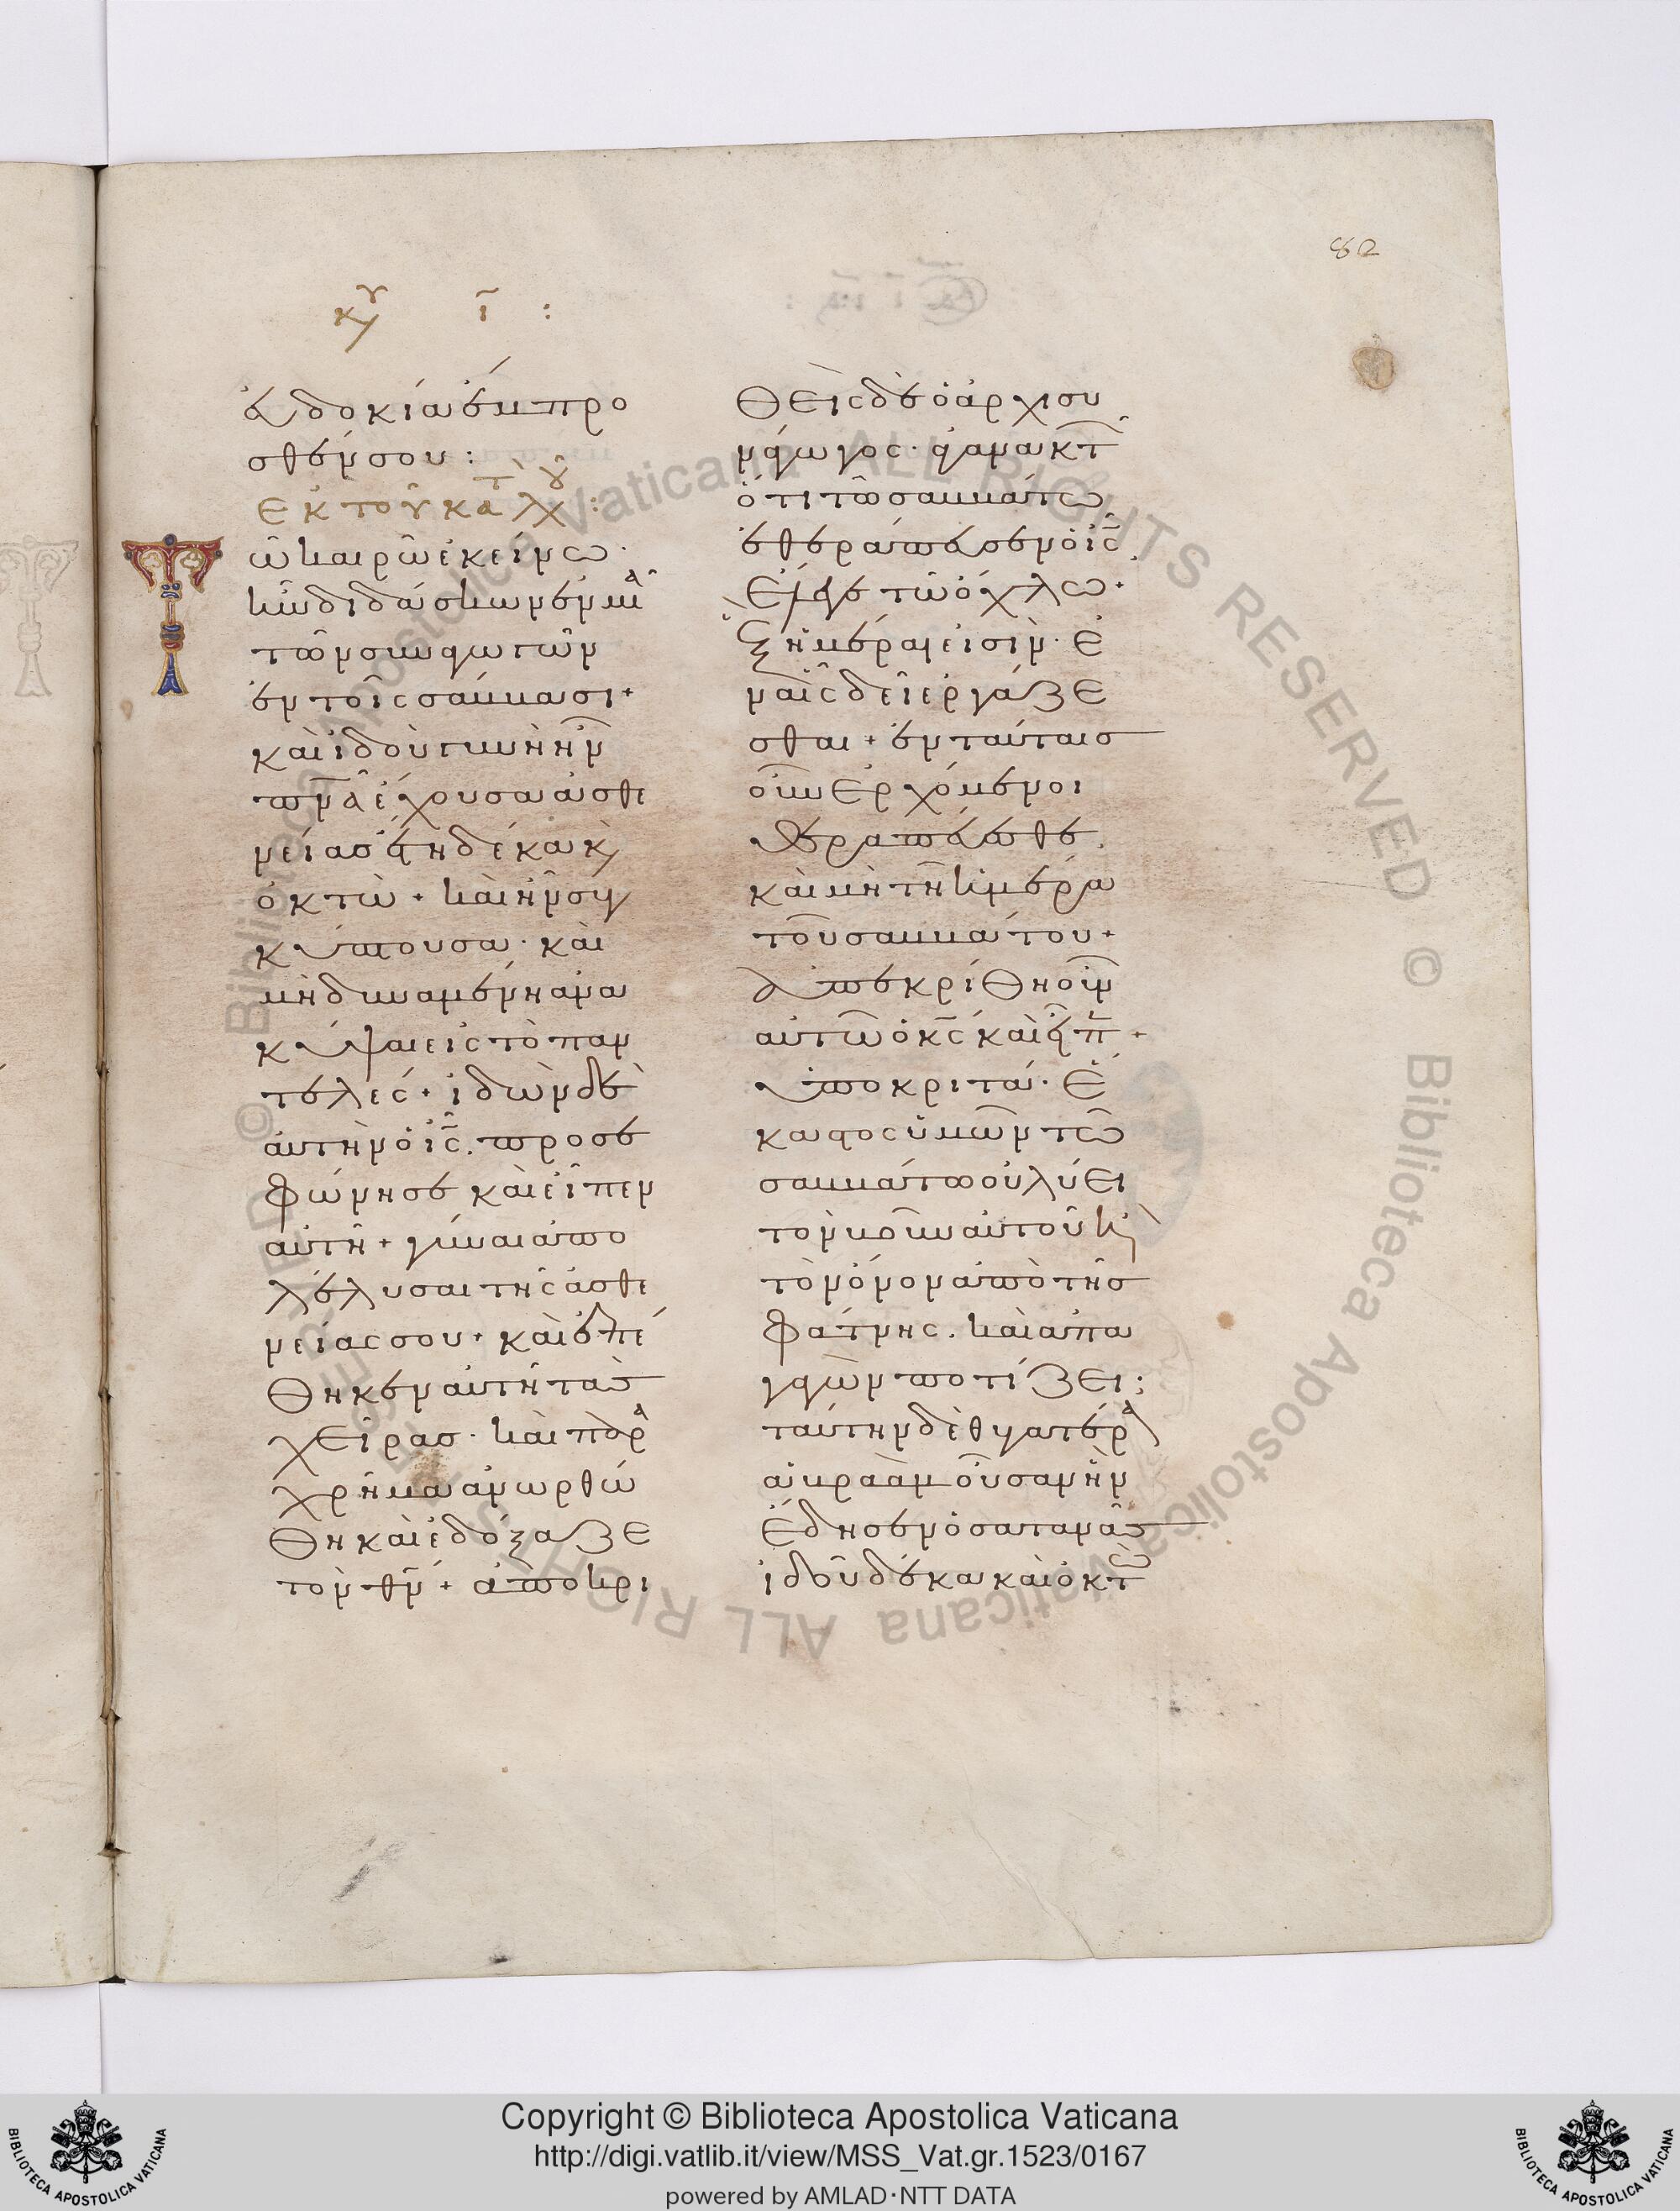 82
κυ ι :
ευδοκία έμπρο
σθέν σου :
Εκ τοῦ κατὰ λουκ :
Τῶ καιρῶ ἐκείνω ·
ἦν διδάσκων ἐν μιᾶ
τῶν συναγωγῶν
ἐν τοῖς σάββασι +
καὶ ἰδοὺ γυνὴ ἦν
πνα ἔχουσα ἀσθε
νείας ἔτη δέκα κ
ὀκτὼ + καὶ ἦν συγ
κύπτουσα · καὶ
μὴ δυναμένη ἀνα
κύψαι εἰς τὸ παν
τελές + ἰδὼν δὲ
αὐτὴν ὁ ις. προσε
φώνησε καὶ εἶπεν
αὐτῆ + γύναι ἀπο
λέλυσαι τῆς ἀσθε
νείας σου + καὶ ἐπέ
θηκεν αὐτῆ τὰς
χεῖρας · καὶ παρα
χρῆμα ἀνωρθώ
θη καὶ ἐδόξαζε
τὸν θν + ἀποκρι
θεὶς δὲ ὁ ἀρχισυ
νάγωγος · ἀγανακτ
ὅτι τῶ σαββάτω
ἐθεράπευσεν ὁ ις
ἔλεγε τῶ ὄχλω +
ἓξ ἡμέραι εἰσὶν · ἐ
ν αἷς δεῖ ἐργάζε
σθαι + ἐν ταύταις
οὖν ἐρχόμενοι
θεραπεύεσθε.
καὶ μὴ τῆ ἡμέρα
τοῦ σαββάτου +
ἀπεκρίθη οὖν
αὐτῶ ὁ κς καὶ εἶπ +
ὑποκριτά · ἕ
καστος ὑμῶν τῶ
σαββάτω οὐ λύει
τὸν βοῦν αὐτοῦ κ
τὸν ὄνον ἀπὸ τῆς
φάτνης. καὶ ἀπα
γαγὼν ποτίζει ;
ταύτην δὲ θυγατέρα
ἀβραὰμ οὖσαν ἣν
ἔδησεν ὁ σατανᾶς
ἰδοῦ δέκα καὶ ὀκτὼ
Copyright © Biblioteca Apostolica Vaticana
http://digi.vatlib.it/view/MSS_Vat.gr.1523/0167
powered by AMLAD·NTT DATA
BIBLIOTECA APOSTOLICA VATICANA
BIBLIOTECA APOSTOLICA VATICANA
© Biblioteca Apostolica Vaticana ALL RIGHTS RESERVED © Biblioteca Apostolica Vaticana ALL RIGHTS RESERVED